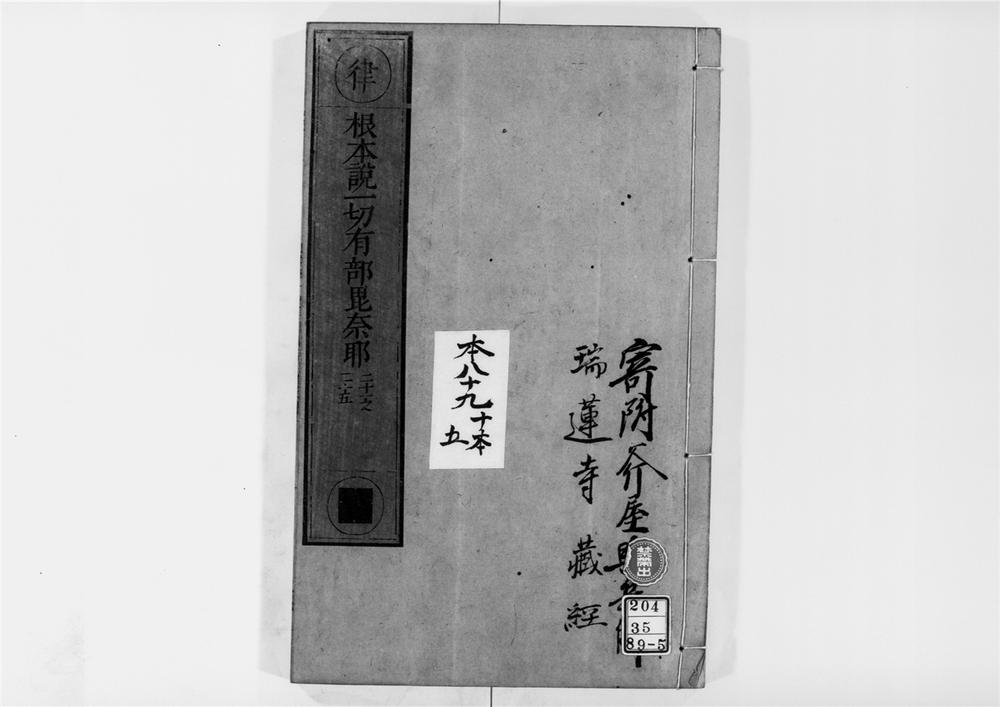 寄附斧屋
瑞蓮寺藏經
禁帶出
204
35
89-5
本八十九
十本
五
律
根本說一切有部毘奈耶
二十一之
二十五